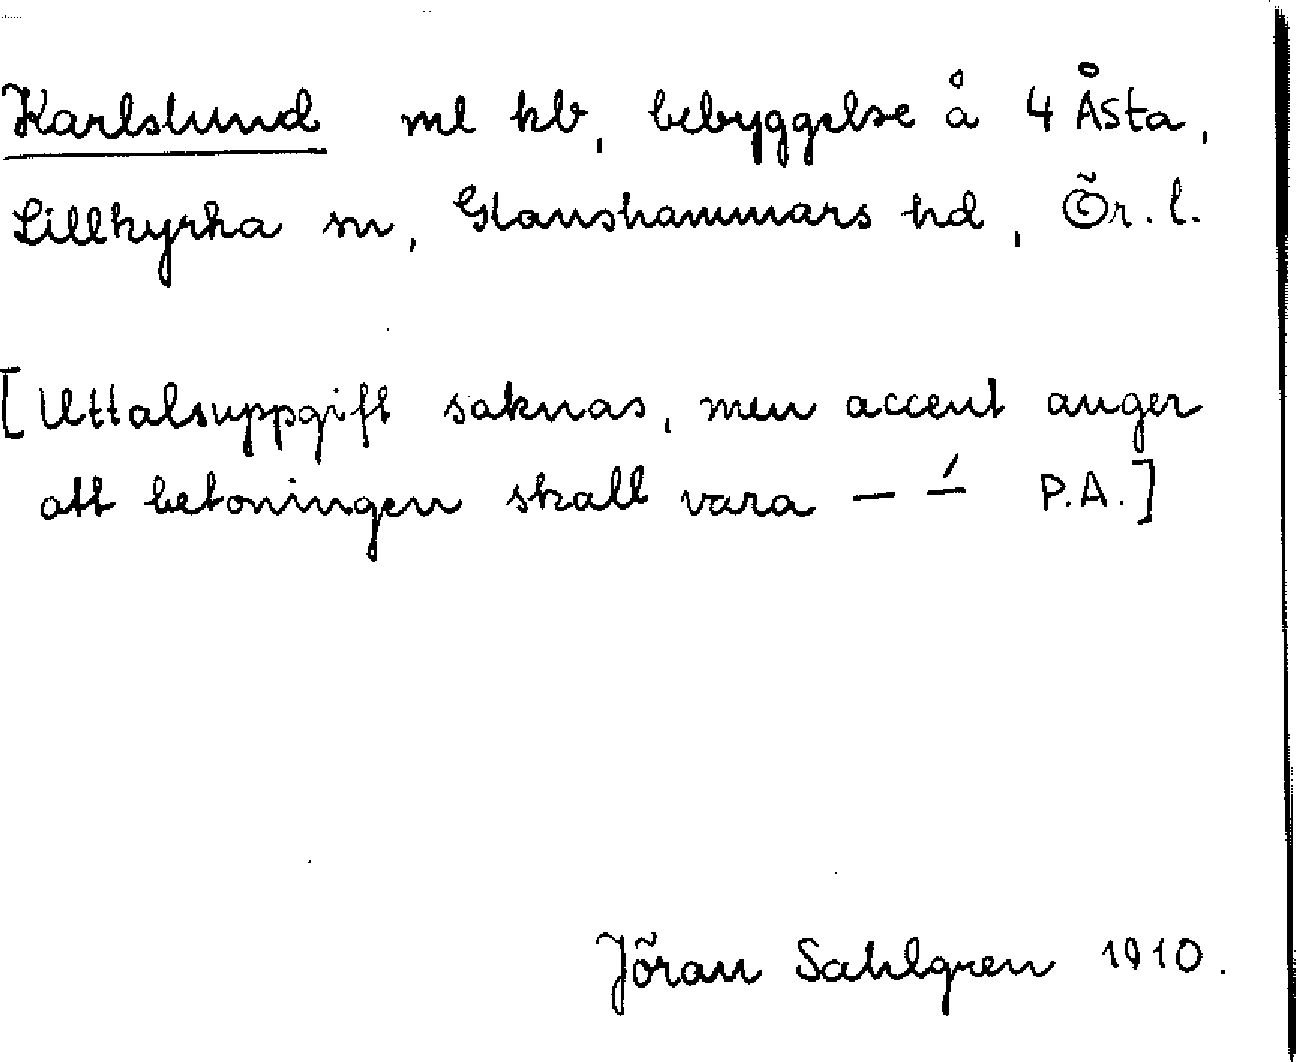 Karlslund ml kb, bebyggelse å 4 Åsta,
Lillkyrka sn, Glanshammars hd, Ör. l.
[Uttalsuppgift saknas, men accent anger
att betoningen skall vara — —́ P.A.]
Jöran Sahlgren 1910.